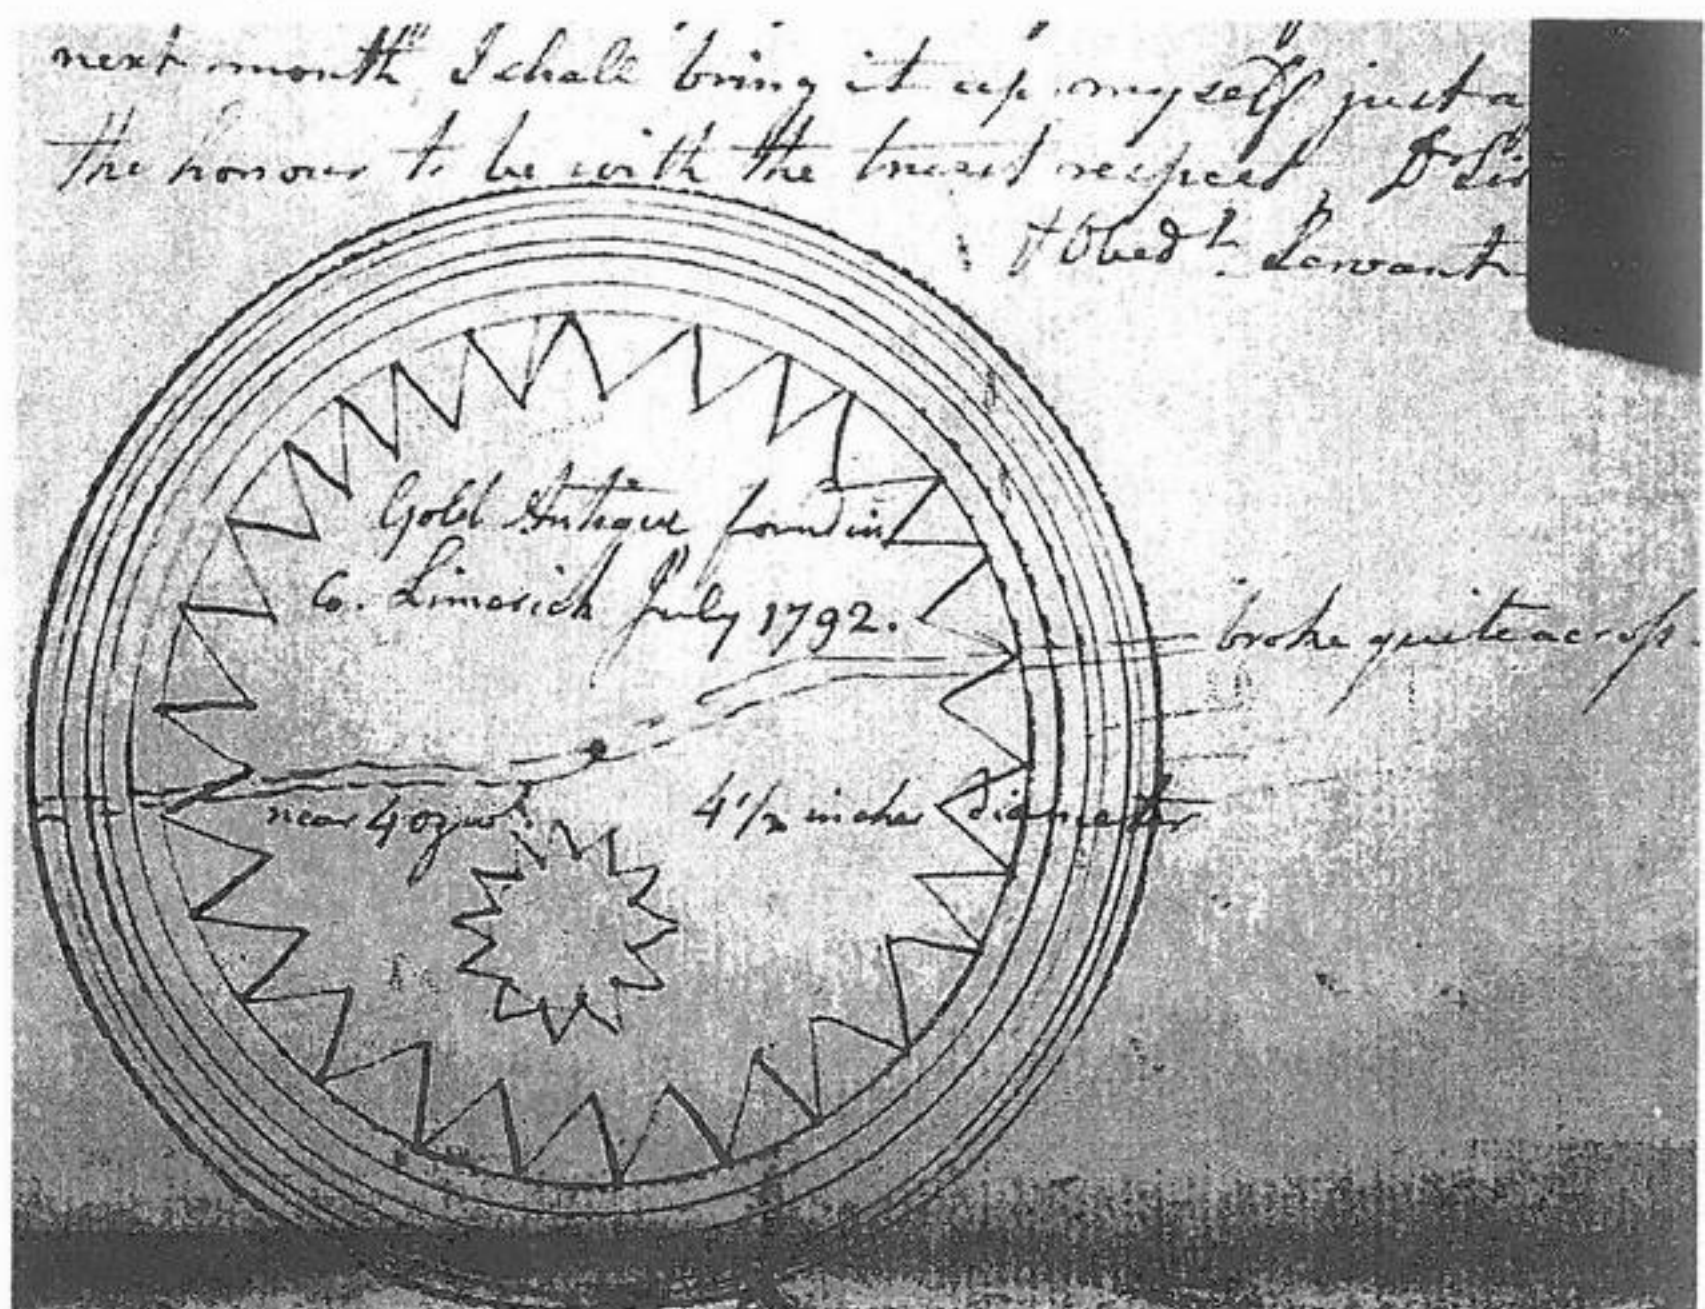 next month I shall bring it up myself just a
the honour to be with the truest respect, Dr Sir
Obedt. Servant
Gold Antique found in
Co. Limerick July 1792.
broke quite across
near 4 oz wt.
4 1/2 inches diameter